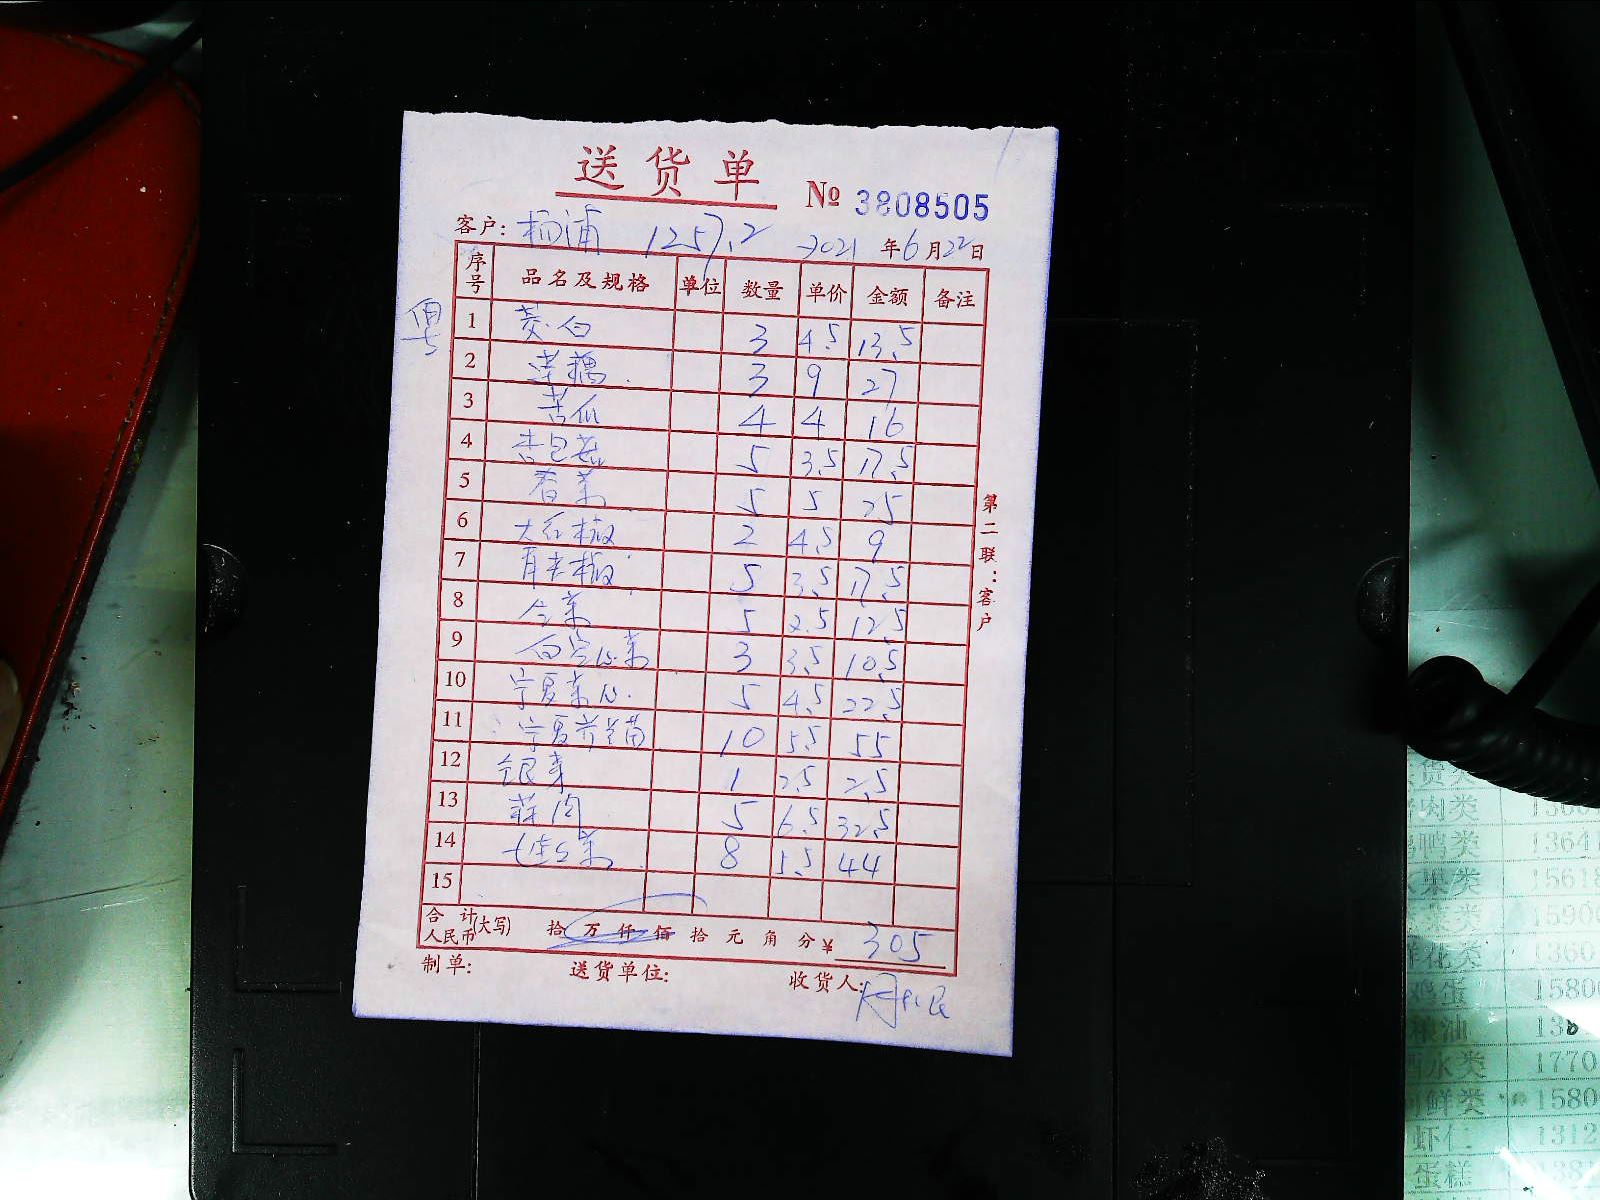 送货单
№ 3808505
客户: 杨浦 1257.2 2021年6月22日
序号 品名及规格 单位 数量 单价 金额 备注
1 茭白 3 4.5 13.5
2 莲藕 3 9 27
3 苦瓜 4 4 16
4 杏包菇 5 3.5 17.5
5 春菜 5 5 25
6 大红椒 2 4.5 9
7 青尖椒 5 3.5 17.5
8 5 2.5 12.5
9 白空心菜 3 3.5 10.5
10 宁夏菜心 5 4.5 22.5
11 宁夏芥兰苗 10 5.5 55
12 银芽 1 2.5 2.5
13 蒜肉 5 6.5 32.5
14 8 5.5 44
15
合计人民币(大写) 拾万仟佰拾元角分 ¥ 305
制单: 送货单位: 收货人:
第二联:客户
肉类
鸭类 1364
果类 1561
1590
鲜花类 1360
鸡蛋 1580
粮油 138
酒水类 1770
鲜类 1580
虾仁 1312
蛋糕 1381